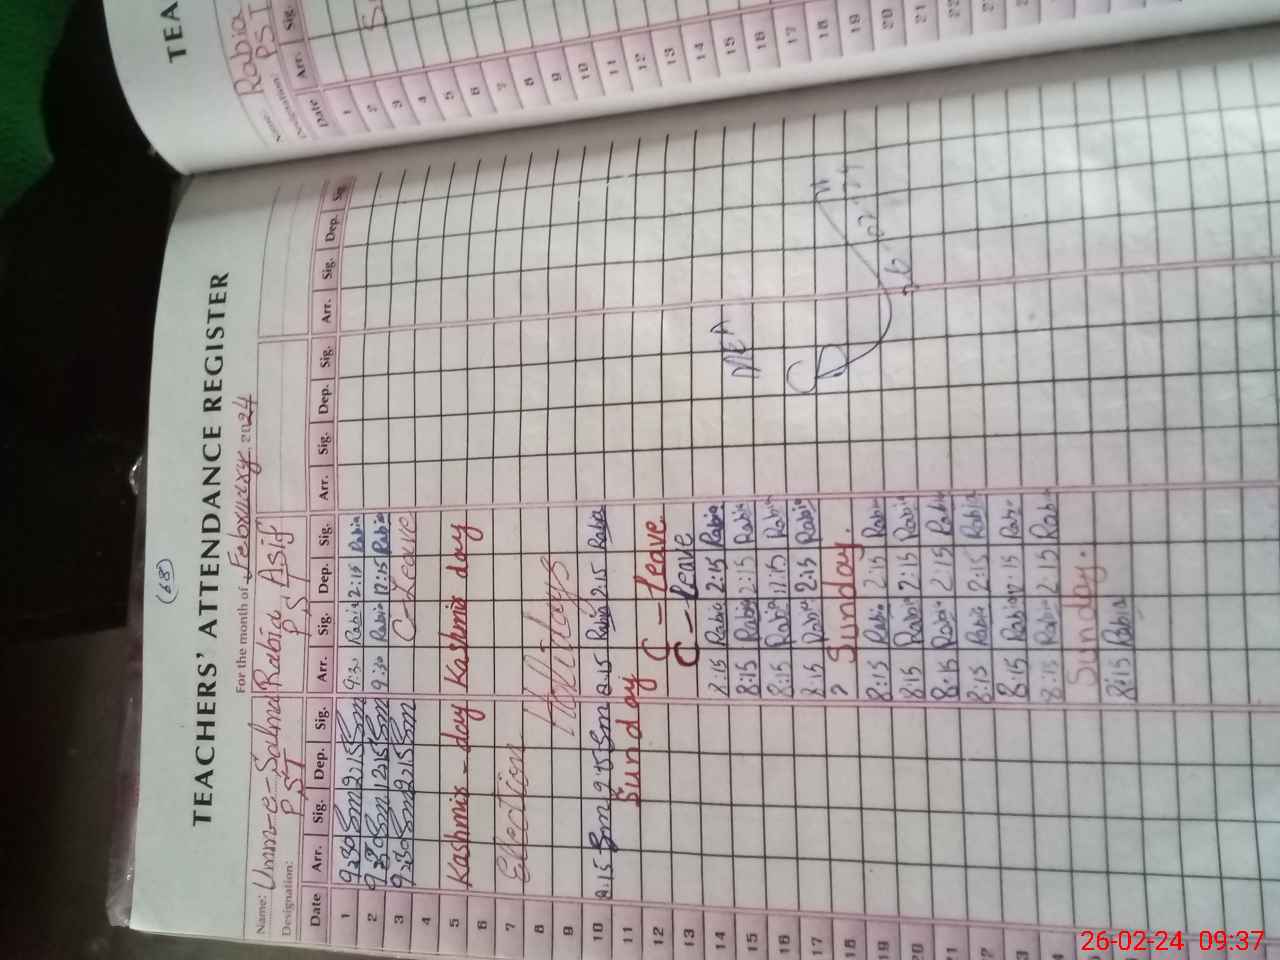 (68)
TEACHERS' ATTENDANCE REGISTER
For the month of February 2024
Name: Umm-e-Salma Rabia Asif
Designation: PST PST
Date Arr. Sig. Dep. Sig. Arr. Sig. Dep. Sig. Arr. Sig. Dep. Sig. Arr. Sig. Dep. Sig.
1 9:30 Sm 2:15 Sm 9:30 Rabia 2:15 Rabia
2 9:30 Sm 12:15 Sm 9:30 Rabia 12:15 Rabia
3 9:30 Sm 2:15 Sm C-Leave
4
5 Kashmir - day Kashmir day
6
7 Ellection
8 Hollidays
9
10 8:15 Sm 2:15 Sm 8:15 Rabia 2:15 Rabia
11 Sunday
12 C - leave
13 C - leave
14 8:15 Rabia 2:15 Rabia
15 8:15 Rabia 2:15 Rabia
16 8:15 Rabia 12:15 Rabia
17 8:15 Rabia 2:15 Rabia
18 Sunday.
19 8:15 Rabia 2:15 Rabia
20 8:15 Rabia 2:15 Rabia
21 8:15 Rabia 2:15 Rabia
22 8:15 Rabia 2:15 Rabia
23 8:15 Rabia 12:15 Rabia
8:15 Rabia 2:15 Rabia
Sunday.
8:15 Rabia
MEA
26-02-24
TEA
Name: Rabia
Designation: PST
Date Arr. Sig.
1
2
3
4
5
6
7
8
9
10
11
12
13
14
15
16
17
18
19
20
21
22
26-02-24 09:37